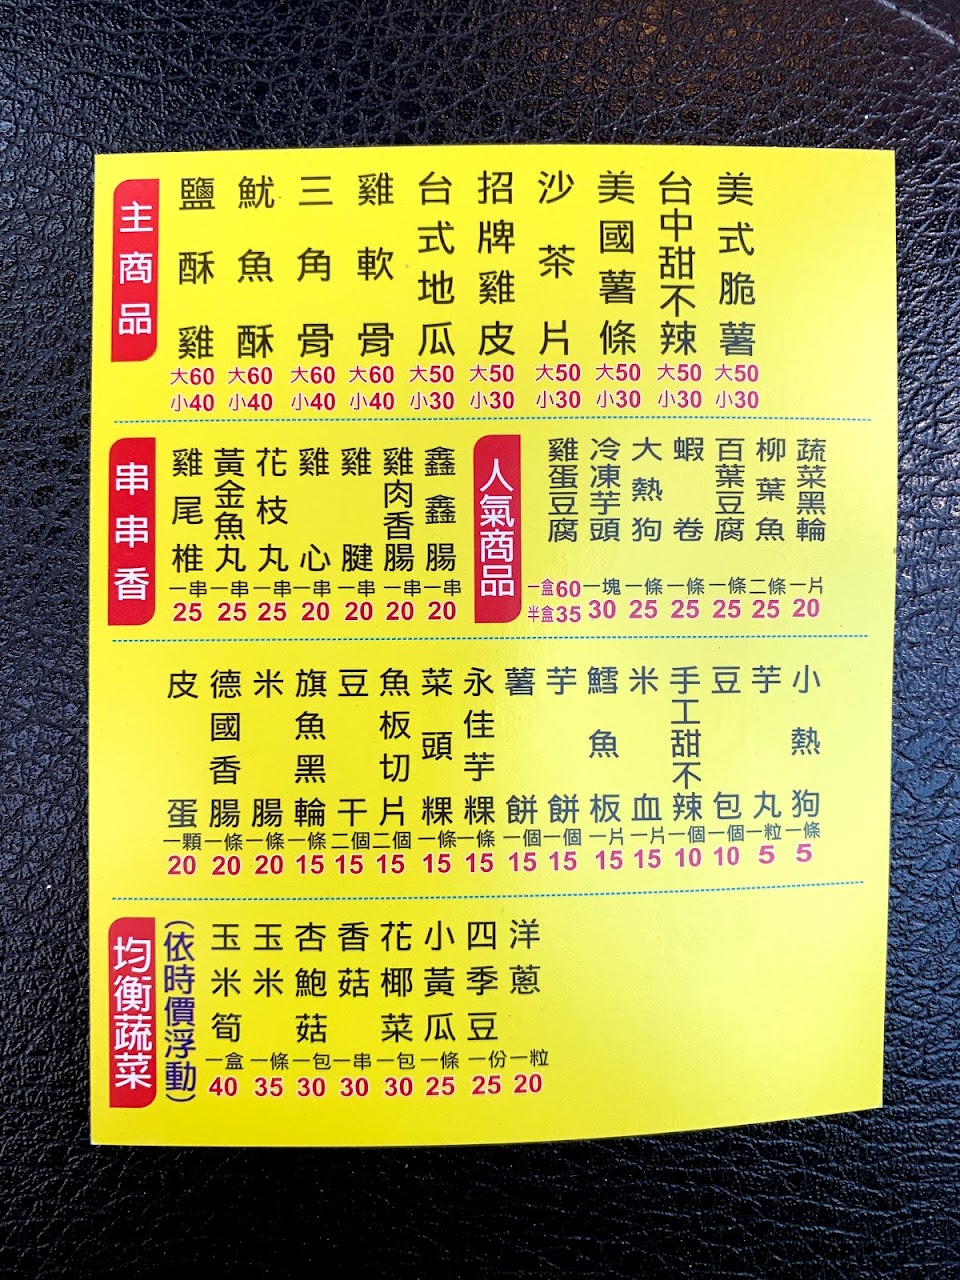 主商品
鹽酥雞 大60 小40
魷魚酥 大60 小40
三角骨 大60 小40
雞軟骨 大60 小40
台式地瓜 大50 小30
招牌雞皮 大50 小30
沙茶片 大50 小30
美國薯條 大50 小30
台中甜不辣 大50 小30
美式脆薯 大50 小30
串串香
雞尾椎 一串 25
黃金魚丸 一串 25
花枝丸 一串 25
雞心 一串 20
雞腱 一串 20
雞肉香腸 一串 20
鑫鑫腸 一串 20
人氣商品
雞蛋豆腐 一盒60 半盒35
冷凍芋頭 一塊 30
大熱狗 一條 25
蝦卷 一條 25
百葉豆腐 一條 25
柳葉魚 二條 25
蔬菜黑輪 一片 20
皮蛋 一顆 20
德國香腸 一條 20
米腸 一條 20
旗魚黑輪 一條 15
豆干 二個 15
魚板切片 二個 15
菜頭粿 一條 15
永佳芋粿 一條 15
薯餅 一個 15
芋餅 一個 15
鱈魚板 一片 15
米血 一片 15
手工甜不辣 一個 10
豆包 一個 10
芋丸 一粒 5
小熱狗 一條 5
均衡蔬菜
(依時價浮動)
玉米筍 一盒 40
玉米 一條 35
杏鮑菇 一包 30
香菇 一串 30
花椰菜 一包 30
小黃瓜 一條 25
四季豆 一份 25
洋蔥 一粒 20